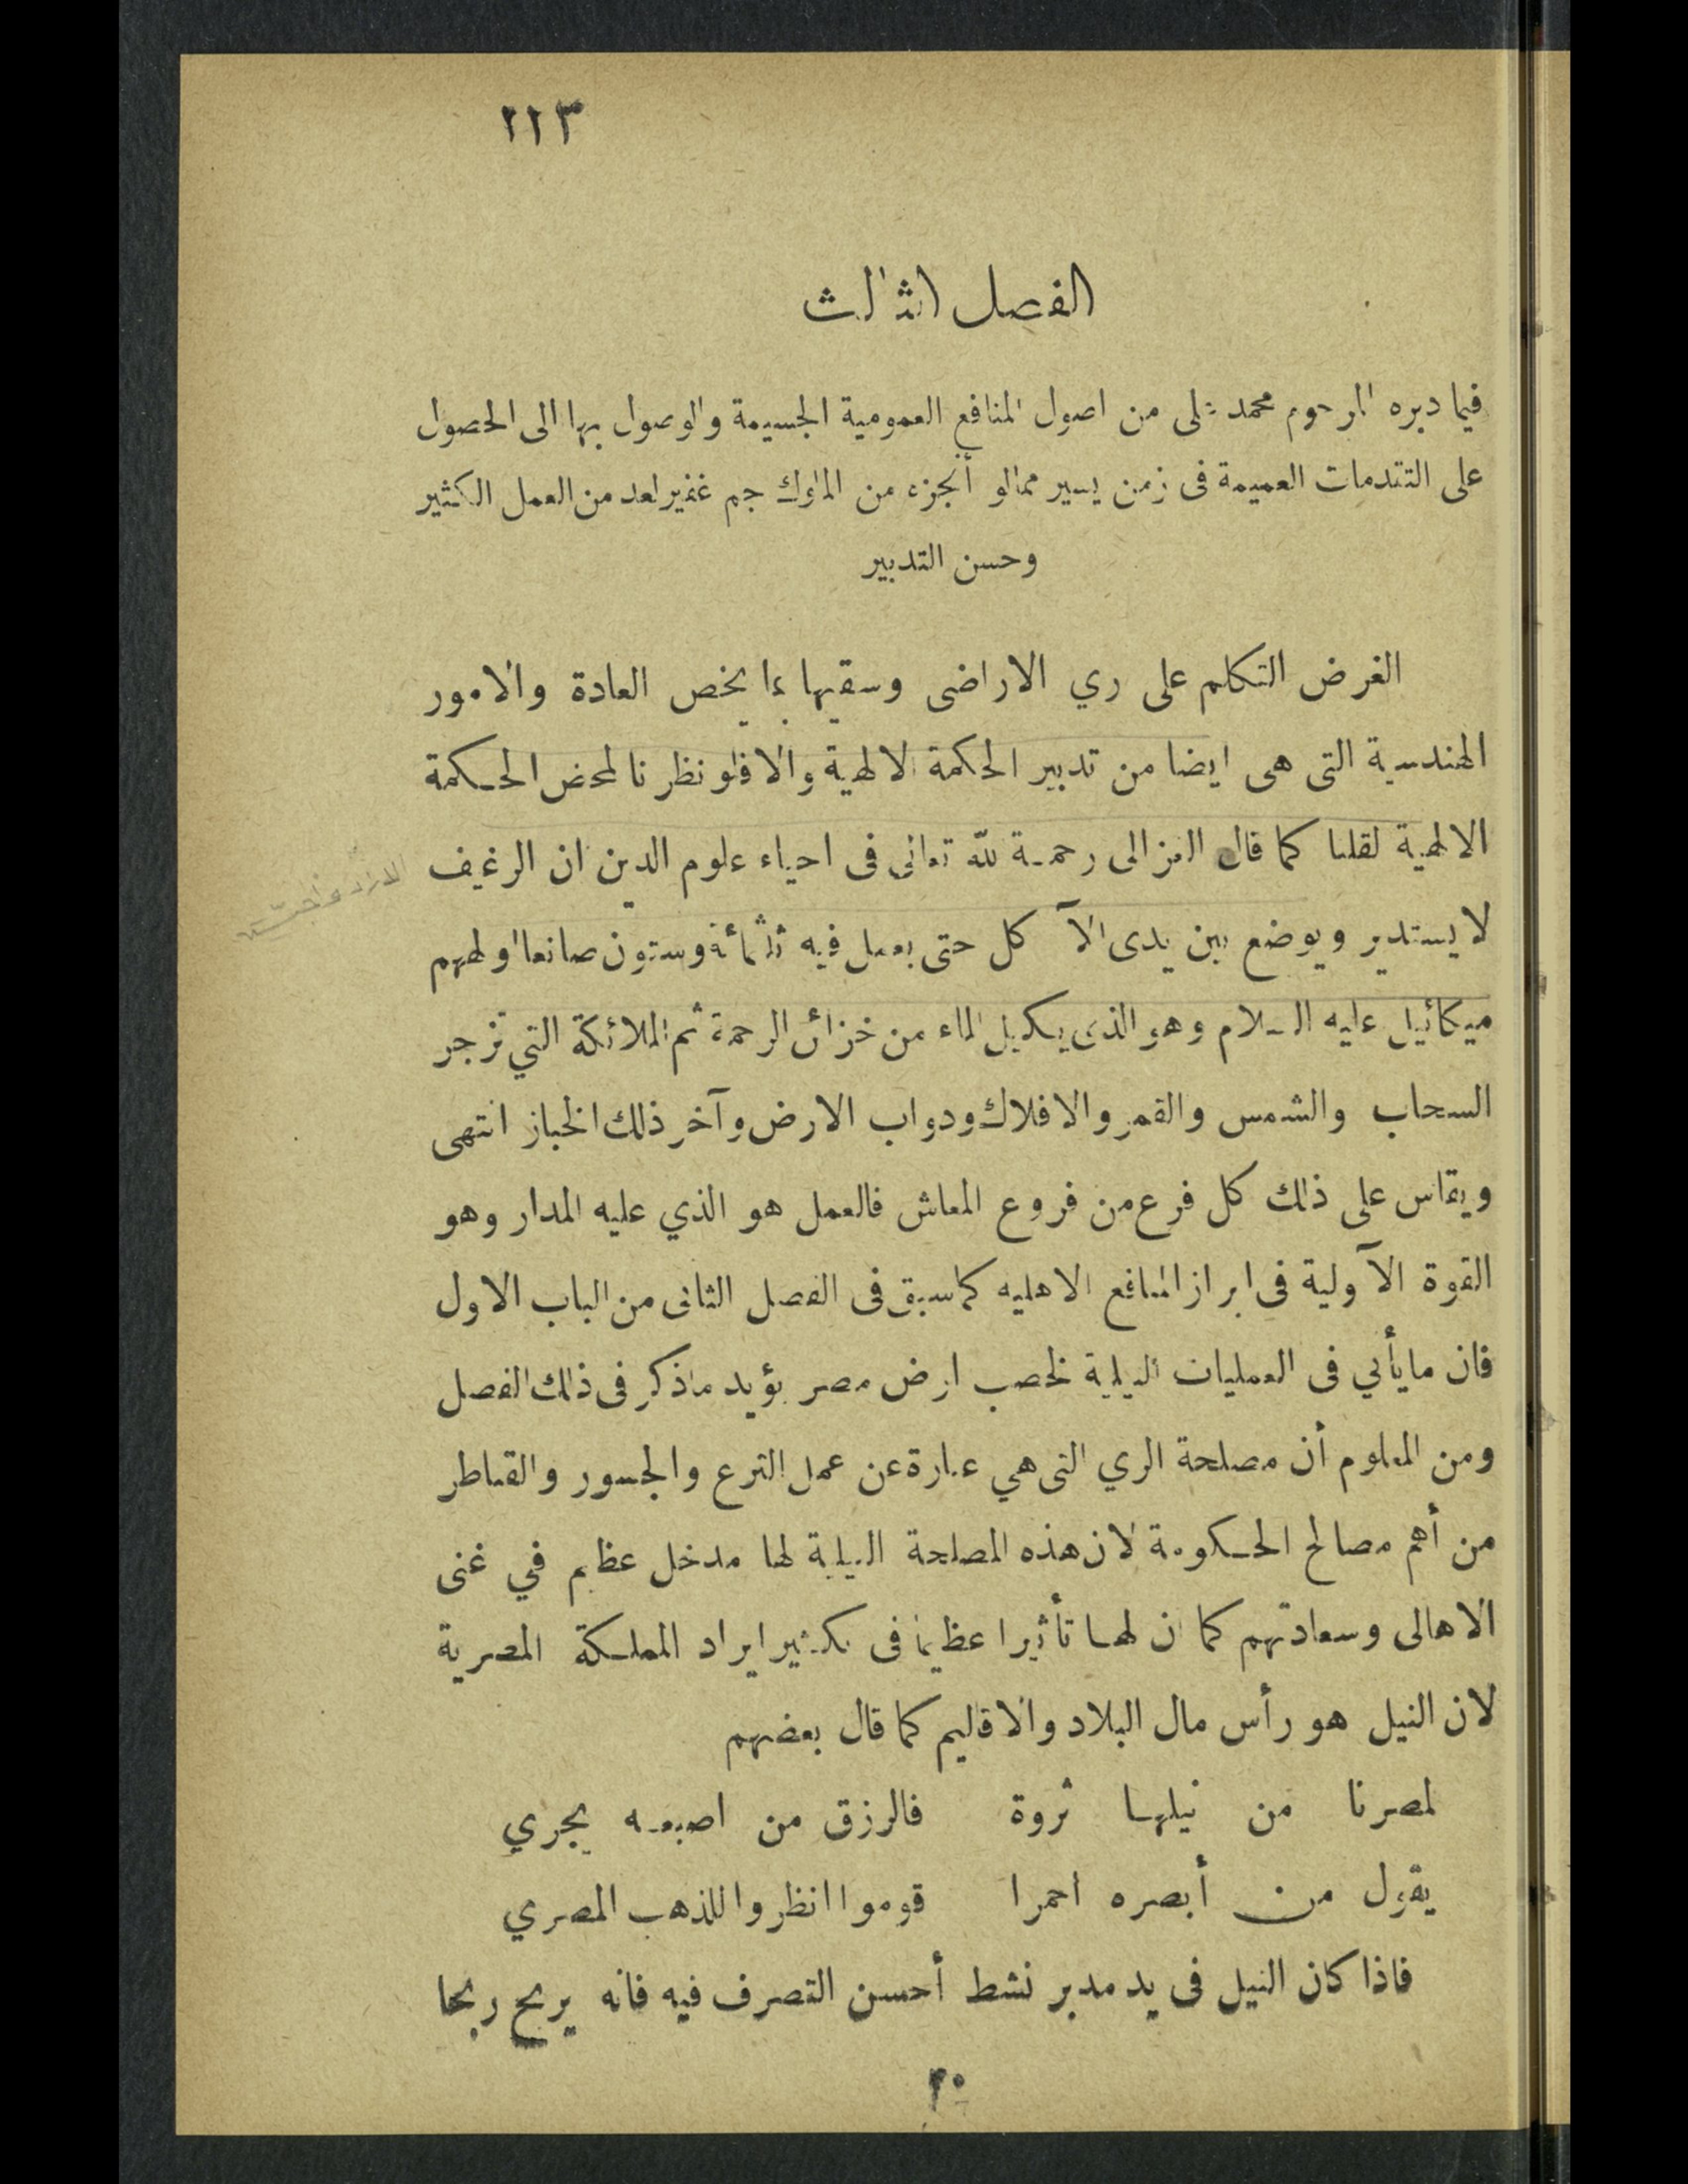 ٢١٣
الفصل الثالث
فيما دبره المرحوم محمد على من اصول المنافع العمومية الجسيمة والوصول بها الى الحصول
على التقدمات العميمة فى زمن يسير مما لو أنجزه من الملوك جم غفير لعد من العمل الكثير
وحسن التدبير
الغرض التكلم على ري الاراضى وسقيها بما يخص العادة والامور
الهندسية التى هى ايضا من تدبير الحكمة الالهية والا فلو نظرنا لمحض الحكمة
الالهية لقلنا كما قال الغزالى رحمة لله تعالى فى احياء علوم الدين ان الرغيف
لا يستدير ويوضع بين يدى الآكل حتى يعمل فيه ثلثمائة وستون صانعا اولهم
ميكائيل عليه السلام وهو الذى يكيل الماء من خزائن الرحمة ثم الملائكة التي تزجر
السحاب والشمس والقمر والافلاك ودواب الارض وآخر ذلك الخباز انتهى
ويقاس على ذلك كل فرع من فروع المعاش فالعمل هو الذي عليه المدار وهو
القوة الآولية فى ابراز المنافع الاهليه كما سبق فى الفصل الثانى من الباب الاول
فان ما يأتي فى العمليات النيلية لخصب ارض مصر يؤيد ما ذكر فى ذلك الفصل
ومن المعلوم أن مصلحة الري التى هي عبارة عن عمل الترع والجسور والقناطر
من أهم مصالح الحكومة لان هذه المصلحة النيلية لها مدخل عظيم في غنى
الاهالى وسعادتهم كما ان لها تأثيرا عظيما فى تكثير ايراد المملكة المصرية
لان النيل هو رأس مال البلاد والاقاليم كما قال بعضهم
لمصرنا من نيلها ثروة فالرزق من اصبعه يجري
يقول من أبصره احمرا قوموا انظروا للذهب المصري
فاذا كان النيل فى يد مدبر نشط أحسن التصرف فيه فانه يربح ربحا